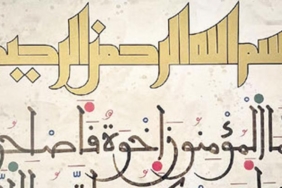 سم الله الرحمن الرحيم
ما المؤمنون اخوة فاصلحو